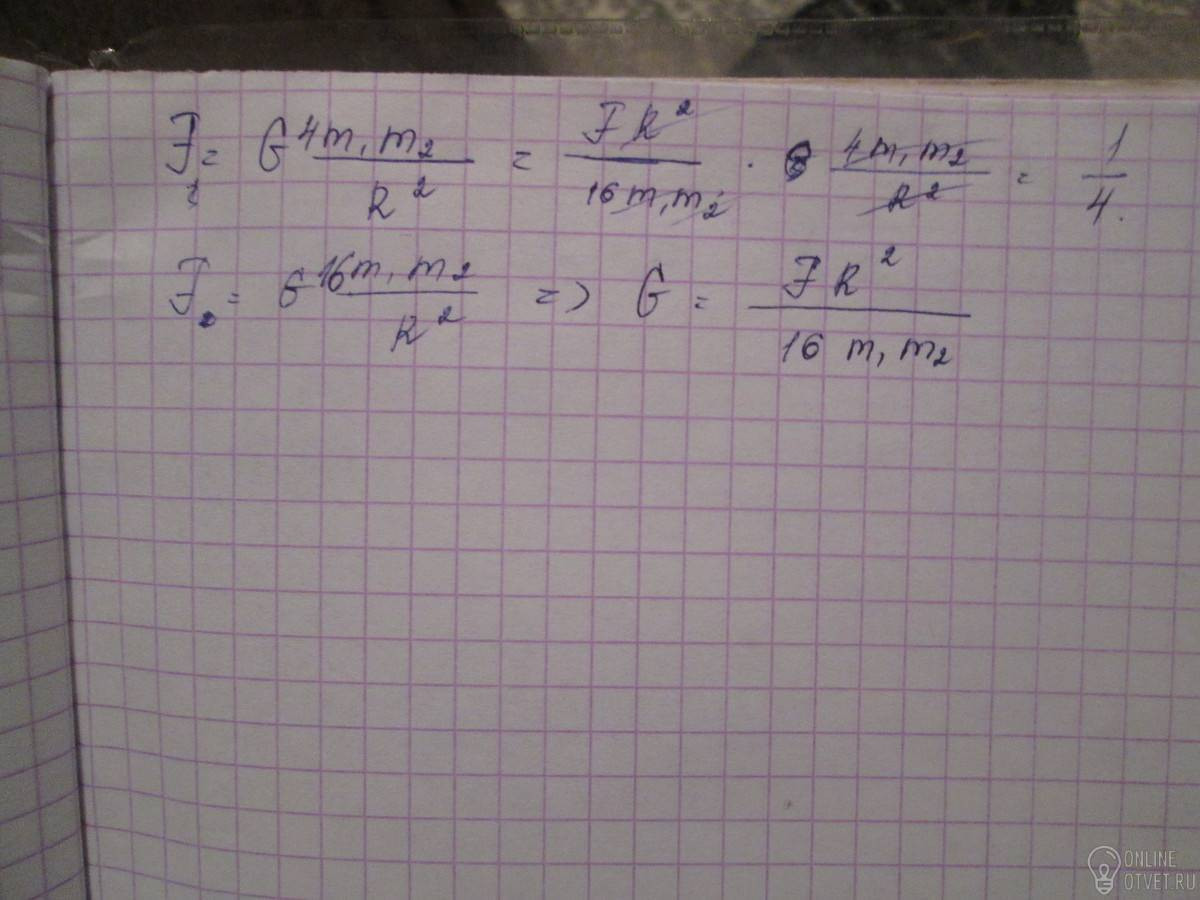 F₁ = G 4m₁m₂ / R² = F R² / 16 m₁m₂ · 4m₁m₂ / R² = 1 / 4.
F₂ = G 16m₁m₂ / R² => G = F R² / 16 m₁m₂
ONLINE
OTVET.RU